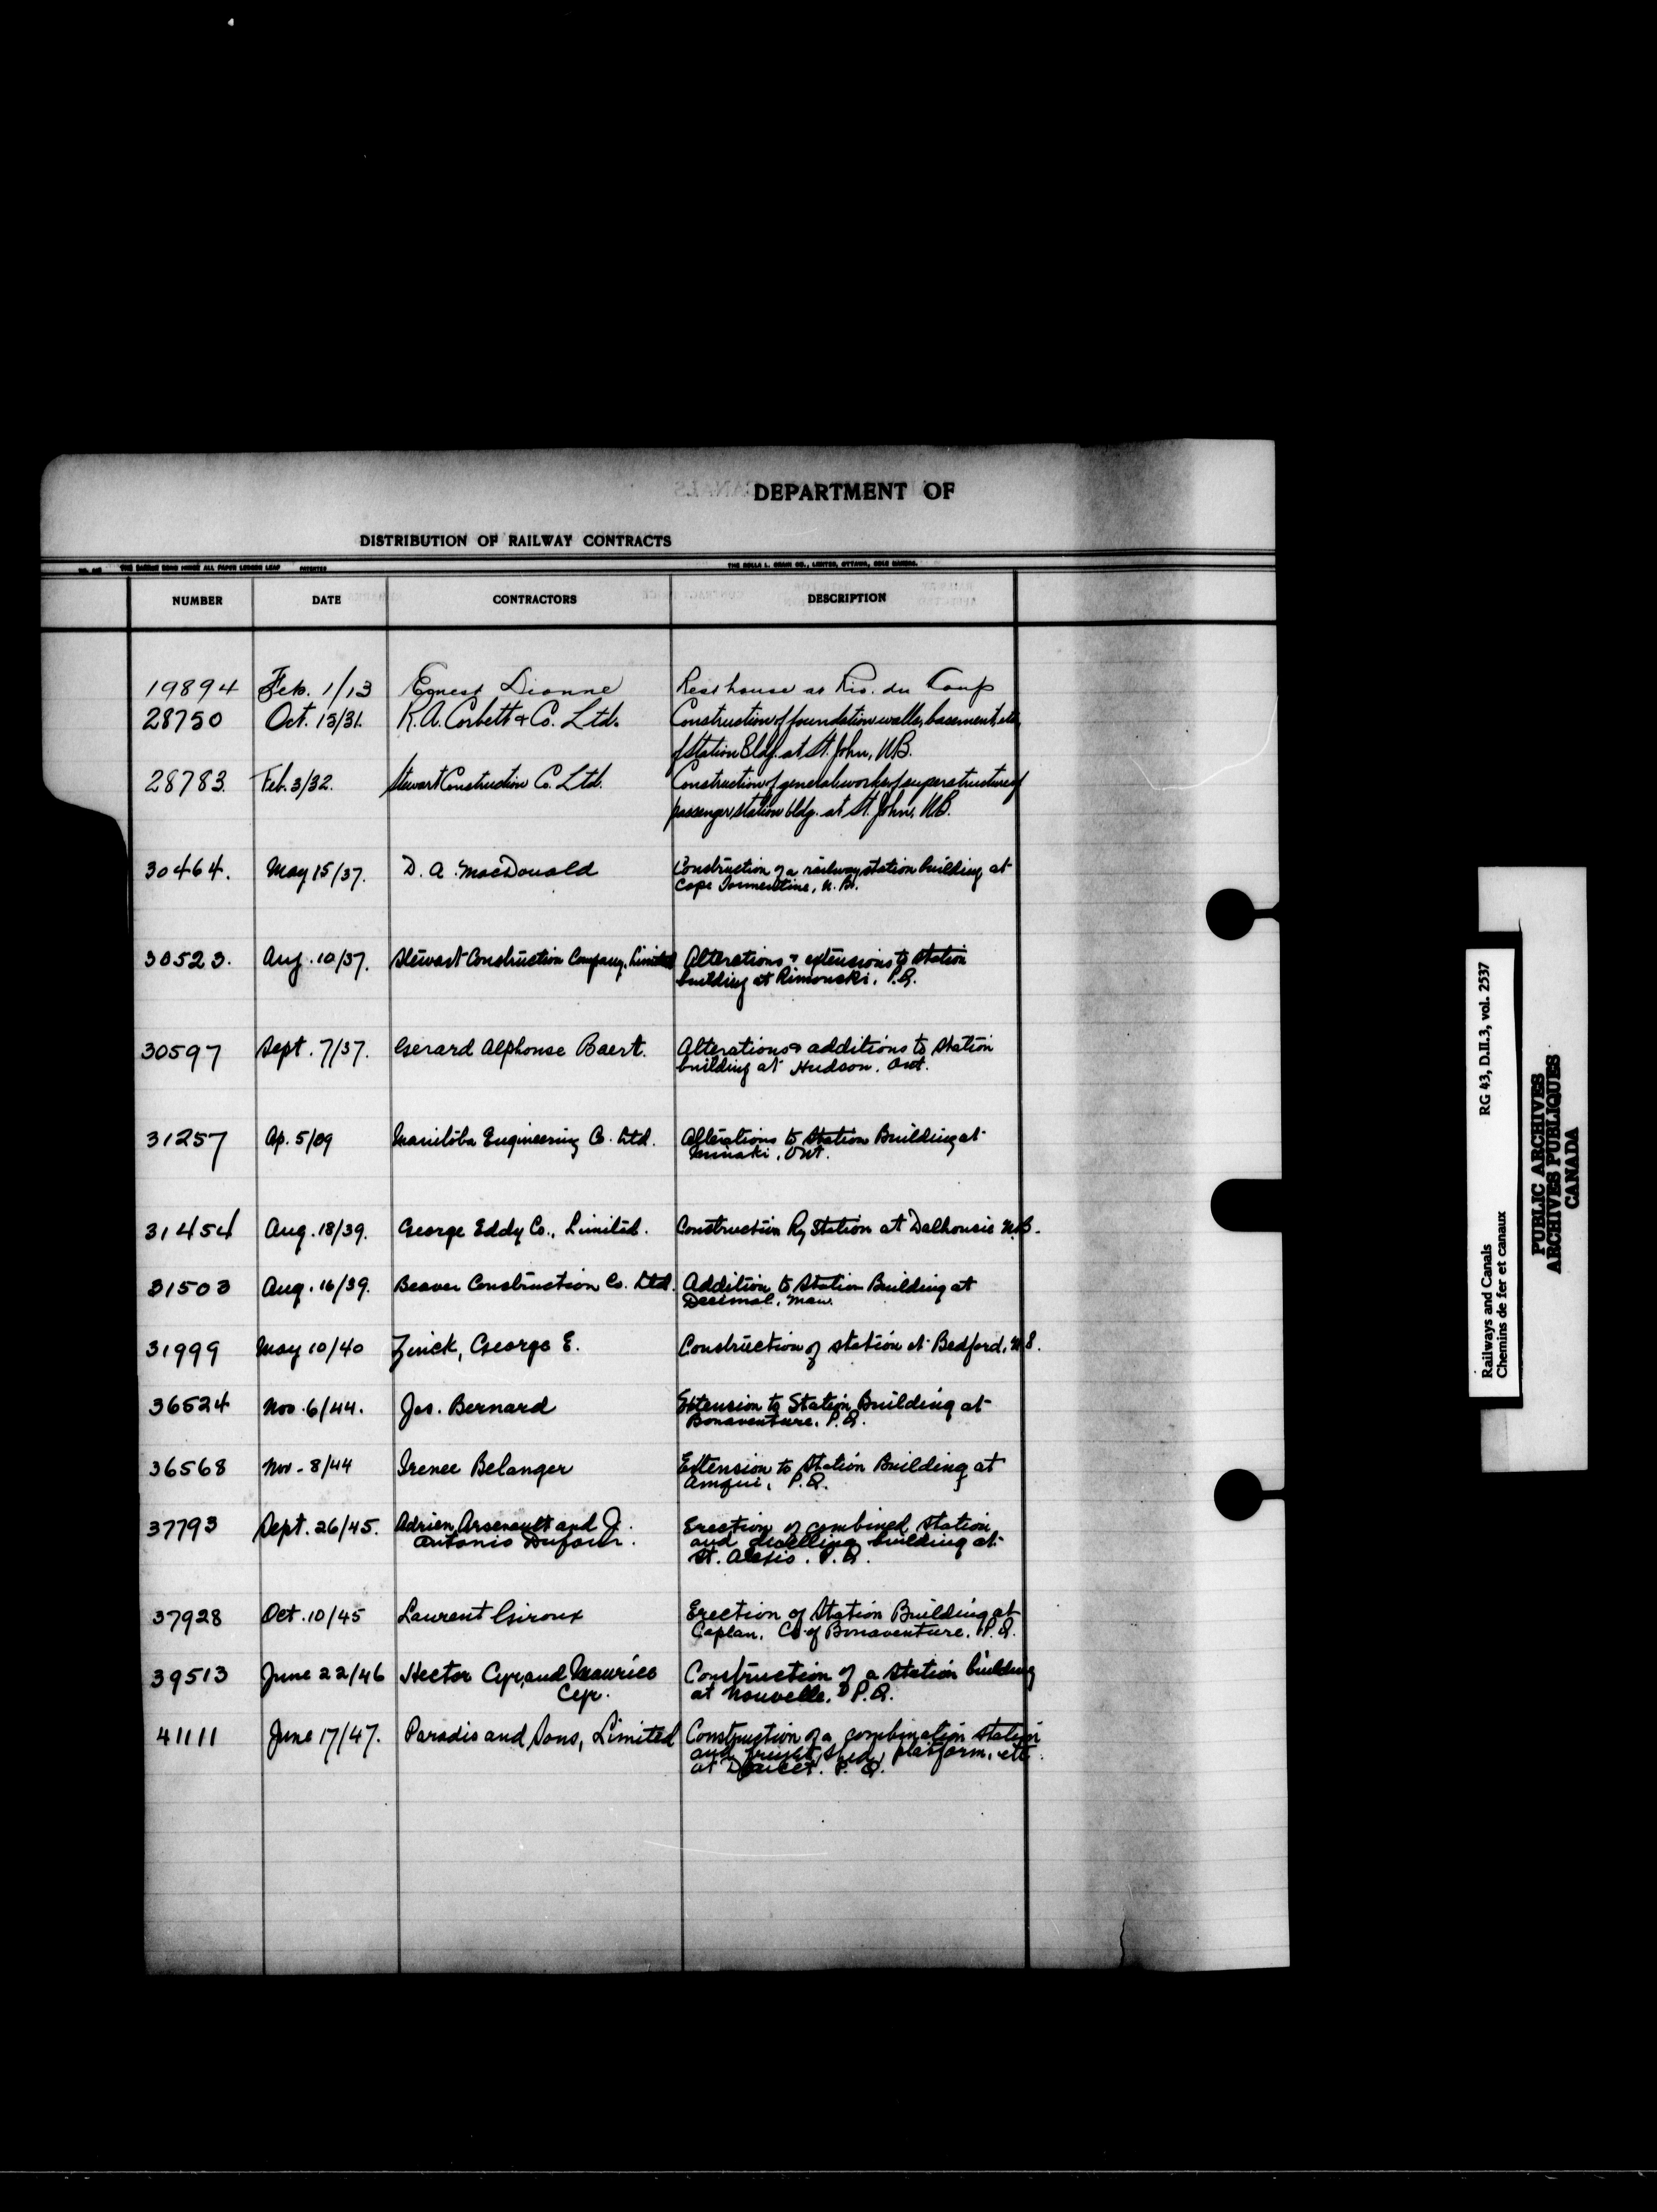 DEPARTMENT OF
DISTRIBUTION OF RAILWAY CONTRACTS
NUMBER DATE CONTRACTORS DESCRIPTION
19894 Feb. 1/13 Ernest Dionne Resthouse at Riv. du Loup
28750 Oct. 15/31. R.A. Corbett & Co. Ltd. Construction of foundation walls, basement, etc.
of Station Bldg. at St. John, N.B.
28783. Feb. 3/32. Stewart Construction Co. Ltd. Construction of general works of superstructure of
passenger station bldg. at St. John, N.B.
30464. May 15/37. D. A. MacDonald Construction of a railway station building at
Cape Tormentine, N.B.
30523. Aug. 10/37. Stewart Construction Company, Limited Alterations & extensions to station
building at Rimouski, P.Q.
30597 Sept. 7/37. Gerard Alphonse Baert. Alterations & additions to station
building at Hudson, Ont.
31257 Ap. 5/39 Manitoba Engineering Co. Ltd. Alterations to Station Building at
Minaki, Ont.
31454 Aug. 18/39. George Eddy Co., Limited. Construction Ry Station at Dalhousie N.B.
31503 Aug. 16/39. Beaver Construction Co. Ltd. Addition to Station Building at
Decimal, Man.
31999 May 10/40 Zinck, George E. Construction of station at Bedford, N.S.
36524 Nov. 6/44. Jos. Bernard Extension to Station Building at
Bonaventure, P.Q.
36568 Nov. 8/44 Irenee Belanger Extension to Station Building at
Amqui, P.Q.
37793 Sept. 26/45. Adrien Arseneault and J. Erection of combined station
Antonio Dufour. and dwelling building at
St. Alexis, P.Q.
37928 Oct. 10/45 Laurent Giroux Erection of Station Building at
Caplan, Co of Bonaventure, P.Q.
39513 June 22/46 Hector Cyr, and Maurice Construction of a station building
Cyr. at Nouvelle, P.Q.
41111 June 17/47. Paradis and Sons, Limited Construction of a combination station
and freight shed, platform, etc.
at P.Q.
Railways and Canals RG 43, D.II.3, vol. 2537
Chemins de fer et canaux
PUBLIC ARCHIVES
ARCHIVES PUBLIQUES
CANADA